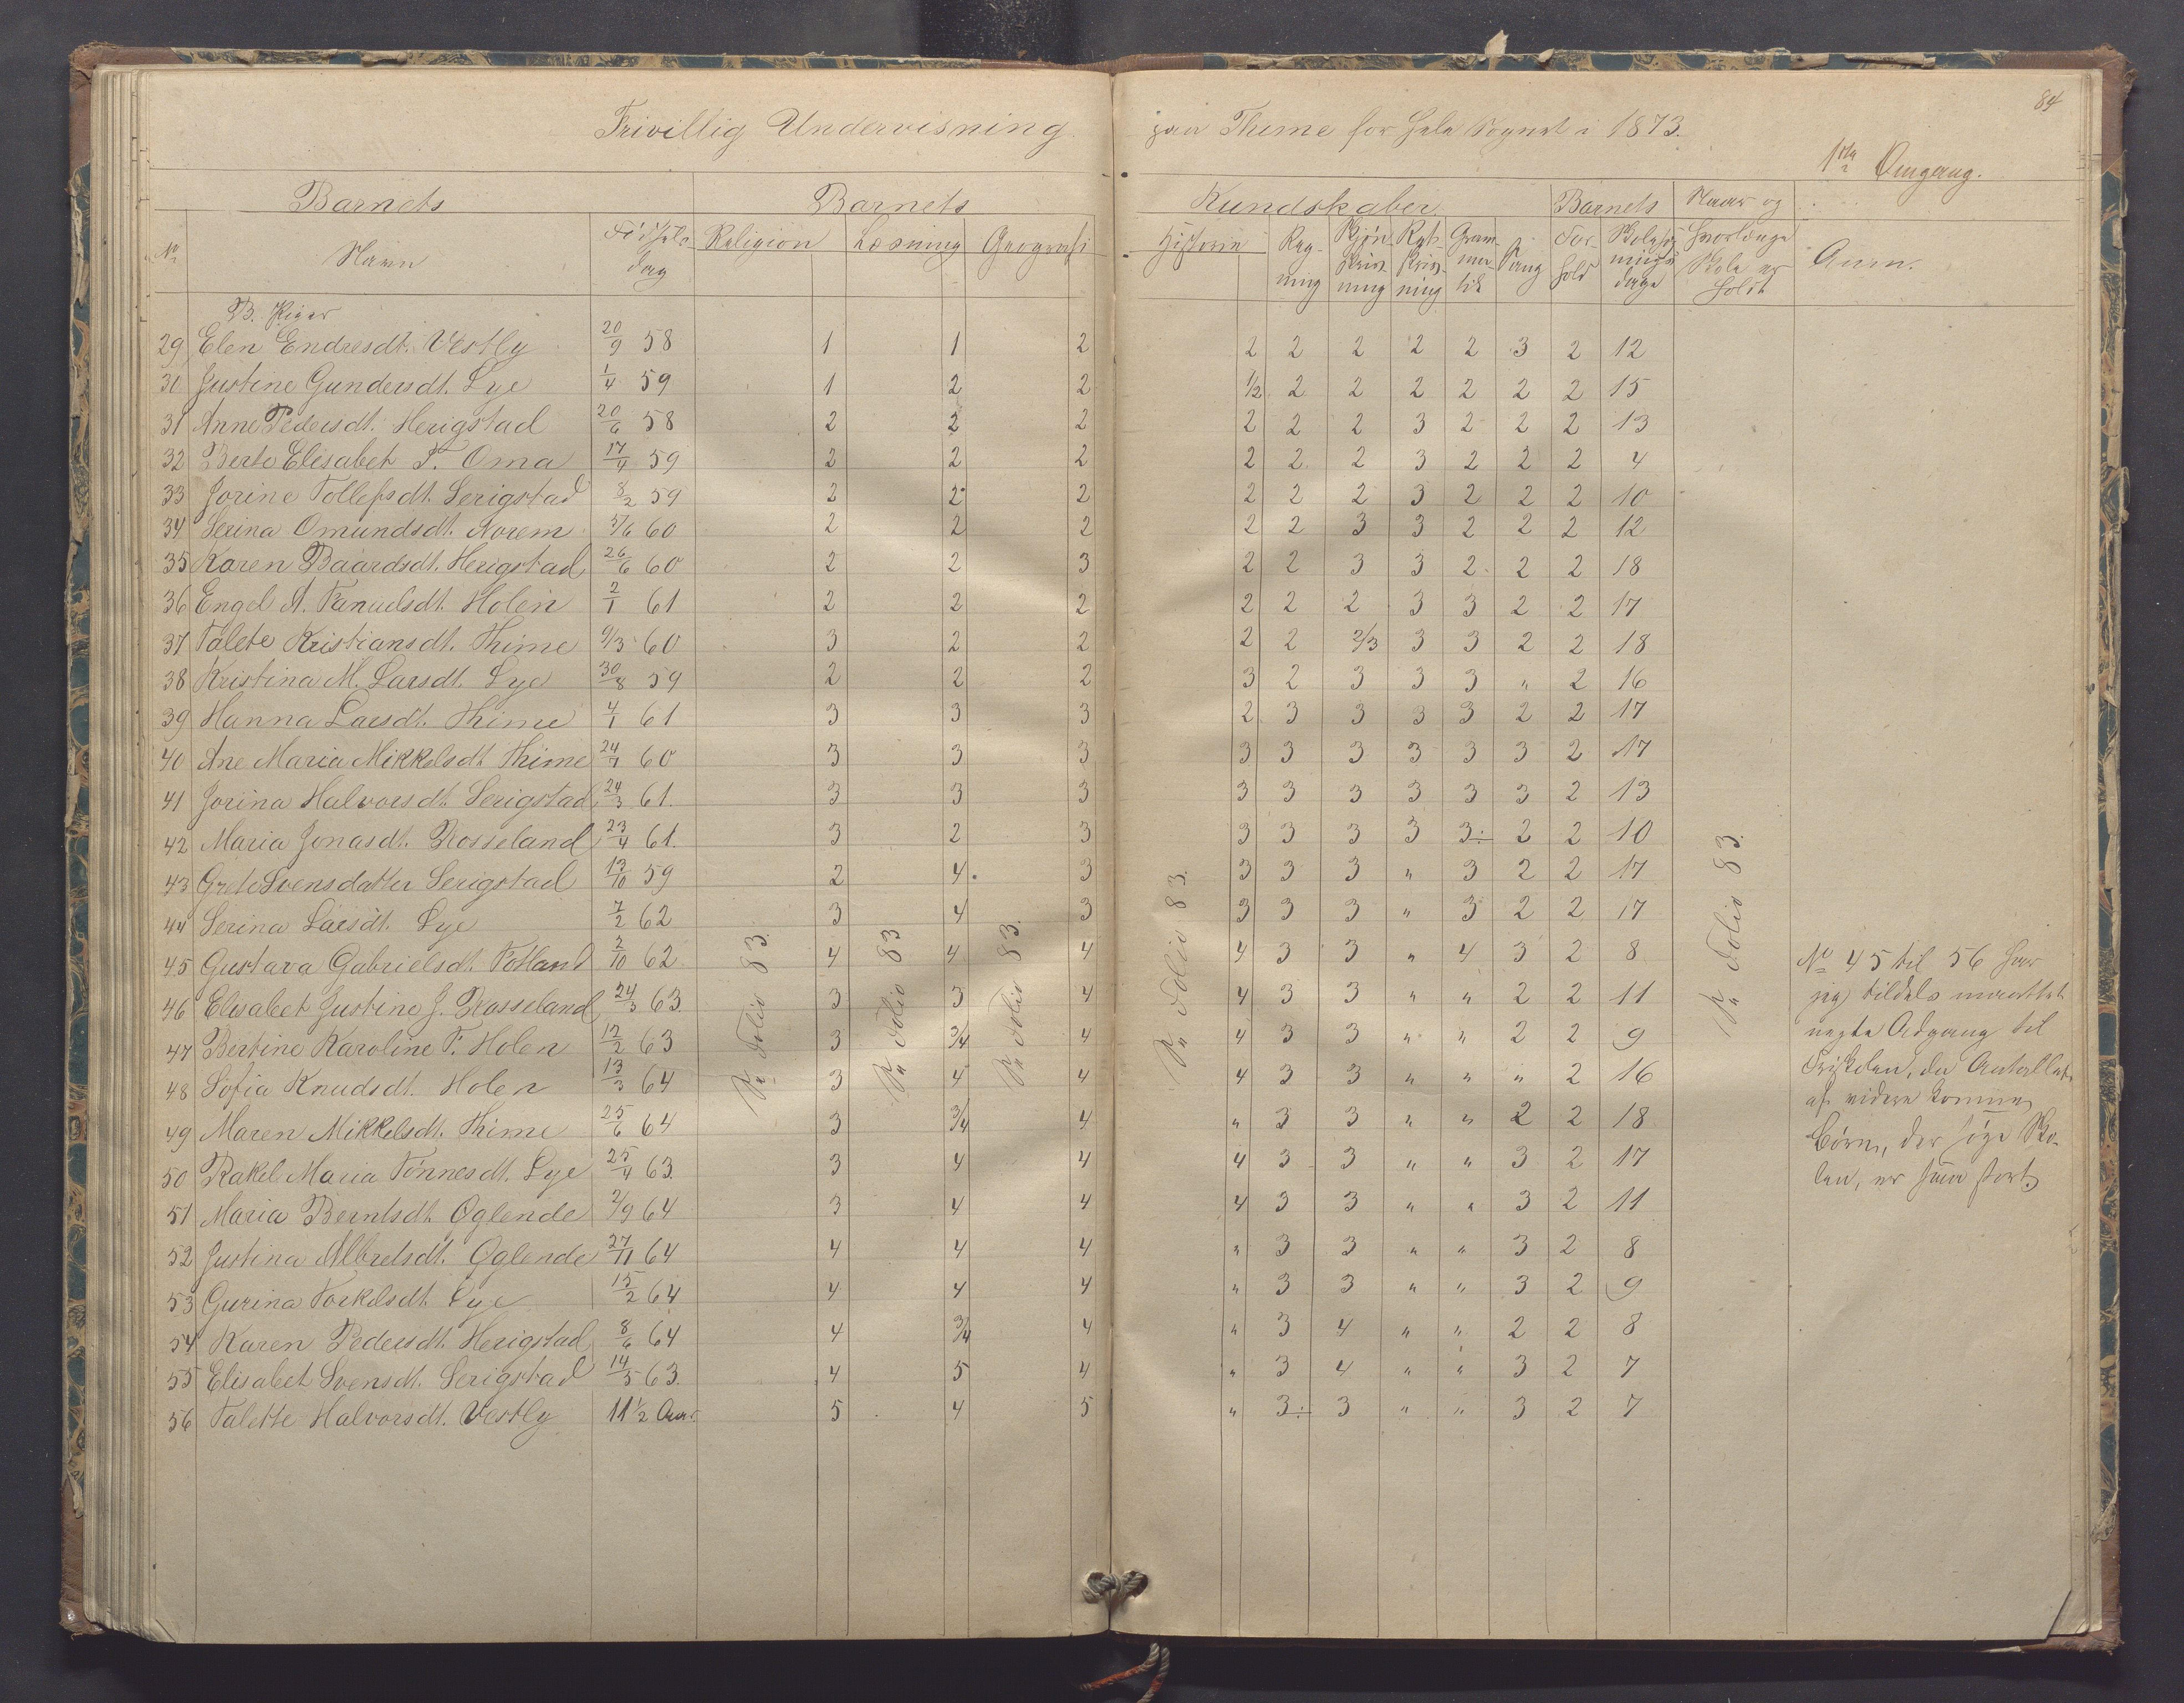 84
Frivillig Undervisning paa Thime for hele Sognet i 1873.
1ste Omgang.
Barnets Barnets Kundskaber Barnets Naar og
No Navn Fødsels dag Religion Læsning Geografi Historie Regning Skjønskrivning Retskrivning Grammatik Sang Forhold Skolesøgningsdage hvorlænge Skole er holdt Anm.
B. Piger
29 Elen Endresdt. Vestly 20/9 58 1 1 2 2 2 2 2 2 3 2 12
30 Justine Gundersdt. Lye 1/4 59 1 2 2 1/2 2 2 2 2 2 2 15
31 Anne Pedersdt. Herigstad 20/6 58 2 2 2 2 2 2 3 2 2 2 13
32 Berte Elisabet T. Oma 17/4 59 2 2 2 2 2 2 3 2 2 2 4
33 Jorine Tollefsdt. Serigstad 8/2 59 2 2 2 2 2 2 3 2 2 2 10
34 Serina Omundsdt. Norem 5/6 60 2 2 2 2 2 3 3 2 2 2 12
35 Karen Baardsdt. Herigstad 26/6 60 2 2 3 2 2 3 3 2 2 2 18
36 Engel A. Tanulsdt. Holen 2/1 61 2 2 2 2 2 2 3 3 2 2 17
37 Talete Kristiansdt. Thime 9/3 60 3 2 2 2 2 2/3 3 3 2 2 18
38 Kristina M. Larsdt. Lye 30/8 59 2 2 2 3 2 3 3 3 " 2 16
39 Hanna Larsdt. Thime 4/1 61 3 3 3 2 3 3 3 3 2 2 17
40 Ane Maria Mikkelsdt. Thime 24/7 60 3 3 3 3 3 3 3 3 3 2 17
41 Jorina Halvorsdt. Serigstad 24/3 61. 3 3 3 3 3 3 3 3 3 2 13
42 Maria Jonasdt. Rosseland 23/4 61. 3 2 3 3 3 3 3 3÷ 2 2 10
43 Grete Svensdatter Serigstad 13/10 59 2 4. 3 3 3 3 " 3 2 2 17
44 Serina Larsdt. Lye 7/2 62 3 4 3 3 3 3 " 3 2 2 17
45 Gustava Gabrielsdt. Fotland 2/10 62 4 4 4 4 3 3 " 4 3 2 8
46 Elisabet Justine J. Rosseland 24/3 63. 3 3 4 4 3 3 " " 2 2 11
47 Bertine Karoline F. Holen 12/2 63 3 3/4 4 4 3 3 " " 2 2 9
48 Sofia Knudsdt. Holen 13/3 64 3 4 4 4 3 3 " " " 2 16
49 Maren Mikkelsdt. Thime 25/6 64 3 3/4 4 " 3 3 " " 2 2 18
50 Rakel Maria Tønnesdt. Lye 25/4 63. 3 4 4 4 3 3 " " 3 2 17
51 Maria Berntsdt. Øglende 2/9 64 3 4 4 4 3 3 " " 3 2 11
52 Justina Albretsdt. Øglende 27/11 64 4 4 4 " 3 3 " " 3 2 8
53 Gurina Torkelsdt. Lye 15/2 64 4 4 4 " 3 3 " " 3 2 9
54 Karen Pedersdt. Herigstad 8/6 64 4 3/4 4 " 3 4 " " 2 2 8
55 Elisabet Svensdt. Serigstad 14/5 63. 4 5 4 " 3 4 " " 3 2 7
56 Talette Halvorsdt. Vestly 11 1/2 Aar 5 4 5 " 3÷ 3 " " 3 2 7
Folio 83.
Folio 83
Folio 83.
Folio 83.
Folio 83.
No 45 til 56 har
jeg tildels maattet
negte Adgang til
Friskolen, da Antallet
af videre komne
Børn, der søge Sko-
len, er saa stort.